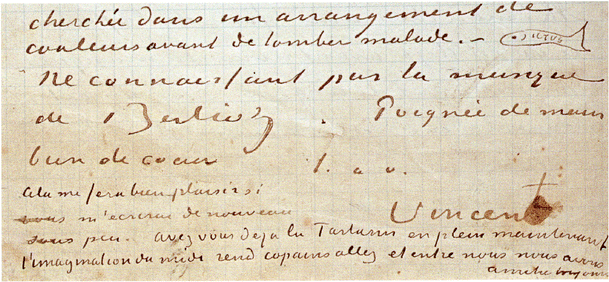 cherchée dans un arrangement de
couleurs avant de tomber malade. –
ICTUS
Ne connaissant pas la musique
de Berlioz. Poignée de main
bien de cœur t. a v.
Vincent
Cela me fera bien plaisir si
vous m'ecrivez de nouveau
sous peu. avez vous deja lu Tartarin en plein maintenant
l'imagination du midi rend copains allez et entre nous nous avons
amitie toujours